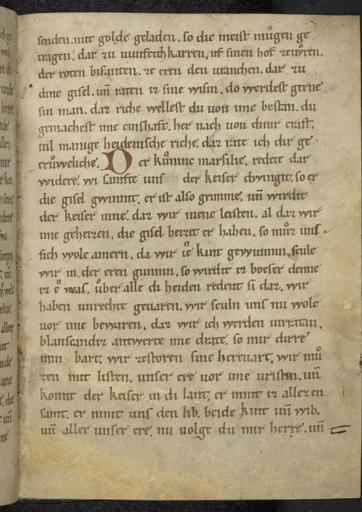 senden. mit golde geladen. so die meist můgen ge
tragen. dar zu uunfcich karren. uf sinen hof zeuoren.
der roten bisanten. ze eren den uranchen. dar zu
dine gisel. uñ raten ir sine wisin. do werdest gerne
sin man. daz riche wellest du uon ime bestan. du
gemachest ime einshafte. her nach uon diner craft.
uil manige heidenische riche. daz rate ich dir ge
trůweliche. Der kůninc marsilie. redete dar
widere. wi samfte uns der keiser dwingit. so er
die gisel gwinnit. er ist also grimme. uñ wirdit
der keiser inne. daz wir imene leisten. al daz wir
ime geheizen. die gisel heizet er haben. so můz uns
sich wole amern. daz wir ie kint gewunnin. scule
wir in der eren gunnin. so wirdit iz boeser denne
iz e was. über alle di heiden redente si daz. wir
haben unrechte geuaren. wir sculn uns nu wole
uor ime bewaren. daz wir ich werden uirratin.
blansandiz antwerte ime drate. so mir dirre
min bart. wir zestoren sine heruart. wir mů
zen mit listen. unser ere uor ime uristen. uñ
komit der keiser in di lant. er nimt iz allez en
samt. er nimit uns den lib. beide kint uñ wib.
uñ aller unser ere. nu uolge du mir herre. uñ